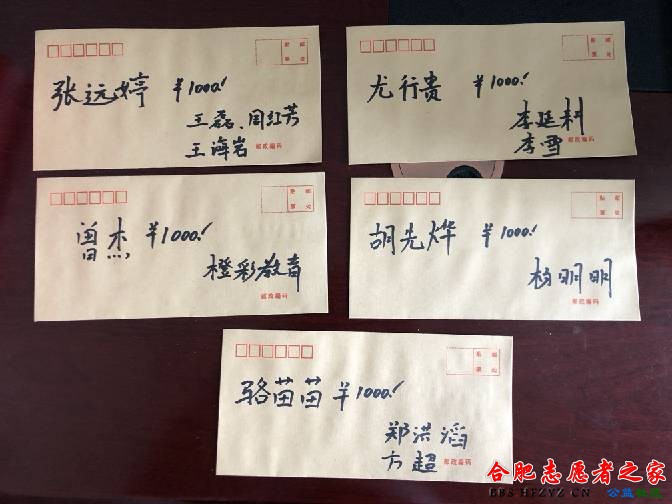 贴 邮
票 处
张远婷 ￥1000.
王磊、周红芳
王海岩
邮政编码
贴 邮
票 处
尤行贵 ￥1000.
李廷利
李雪
邮政编码
贴 邮
票 处
曾杰 ￥1000.
橙彩教育
邮政编码
贴 邮
票 处
胡先烨 ￥1000.
杨明明
邮政编码
贴 邮
票 处
骆苗苗 ￥1000.
郑洪滔
方超
邮政编码
合肥志愿者之家
BBS.HFZYZ.CN
公益